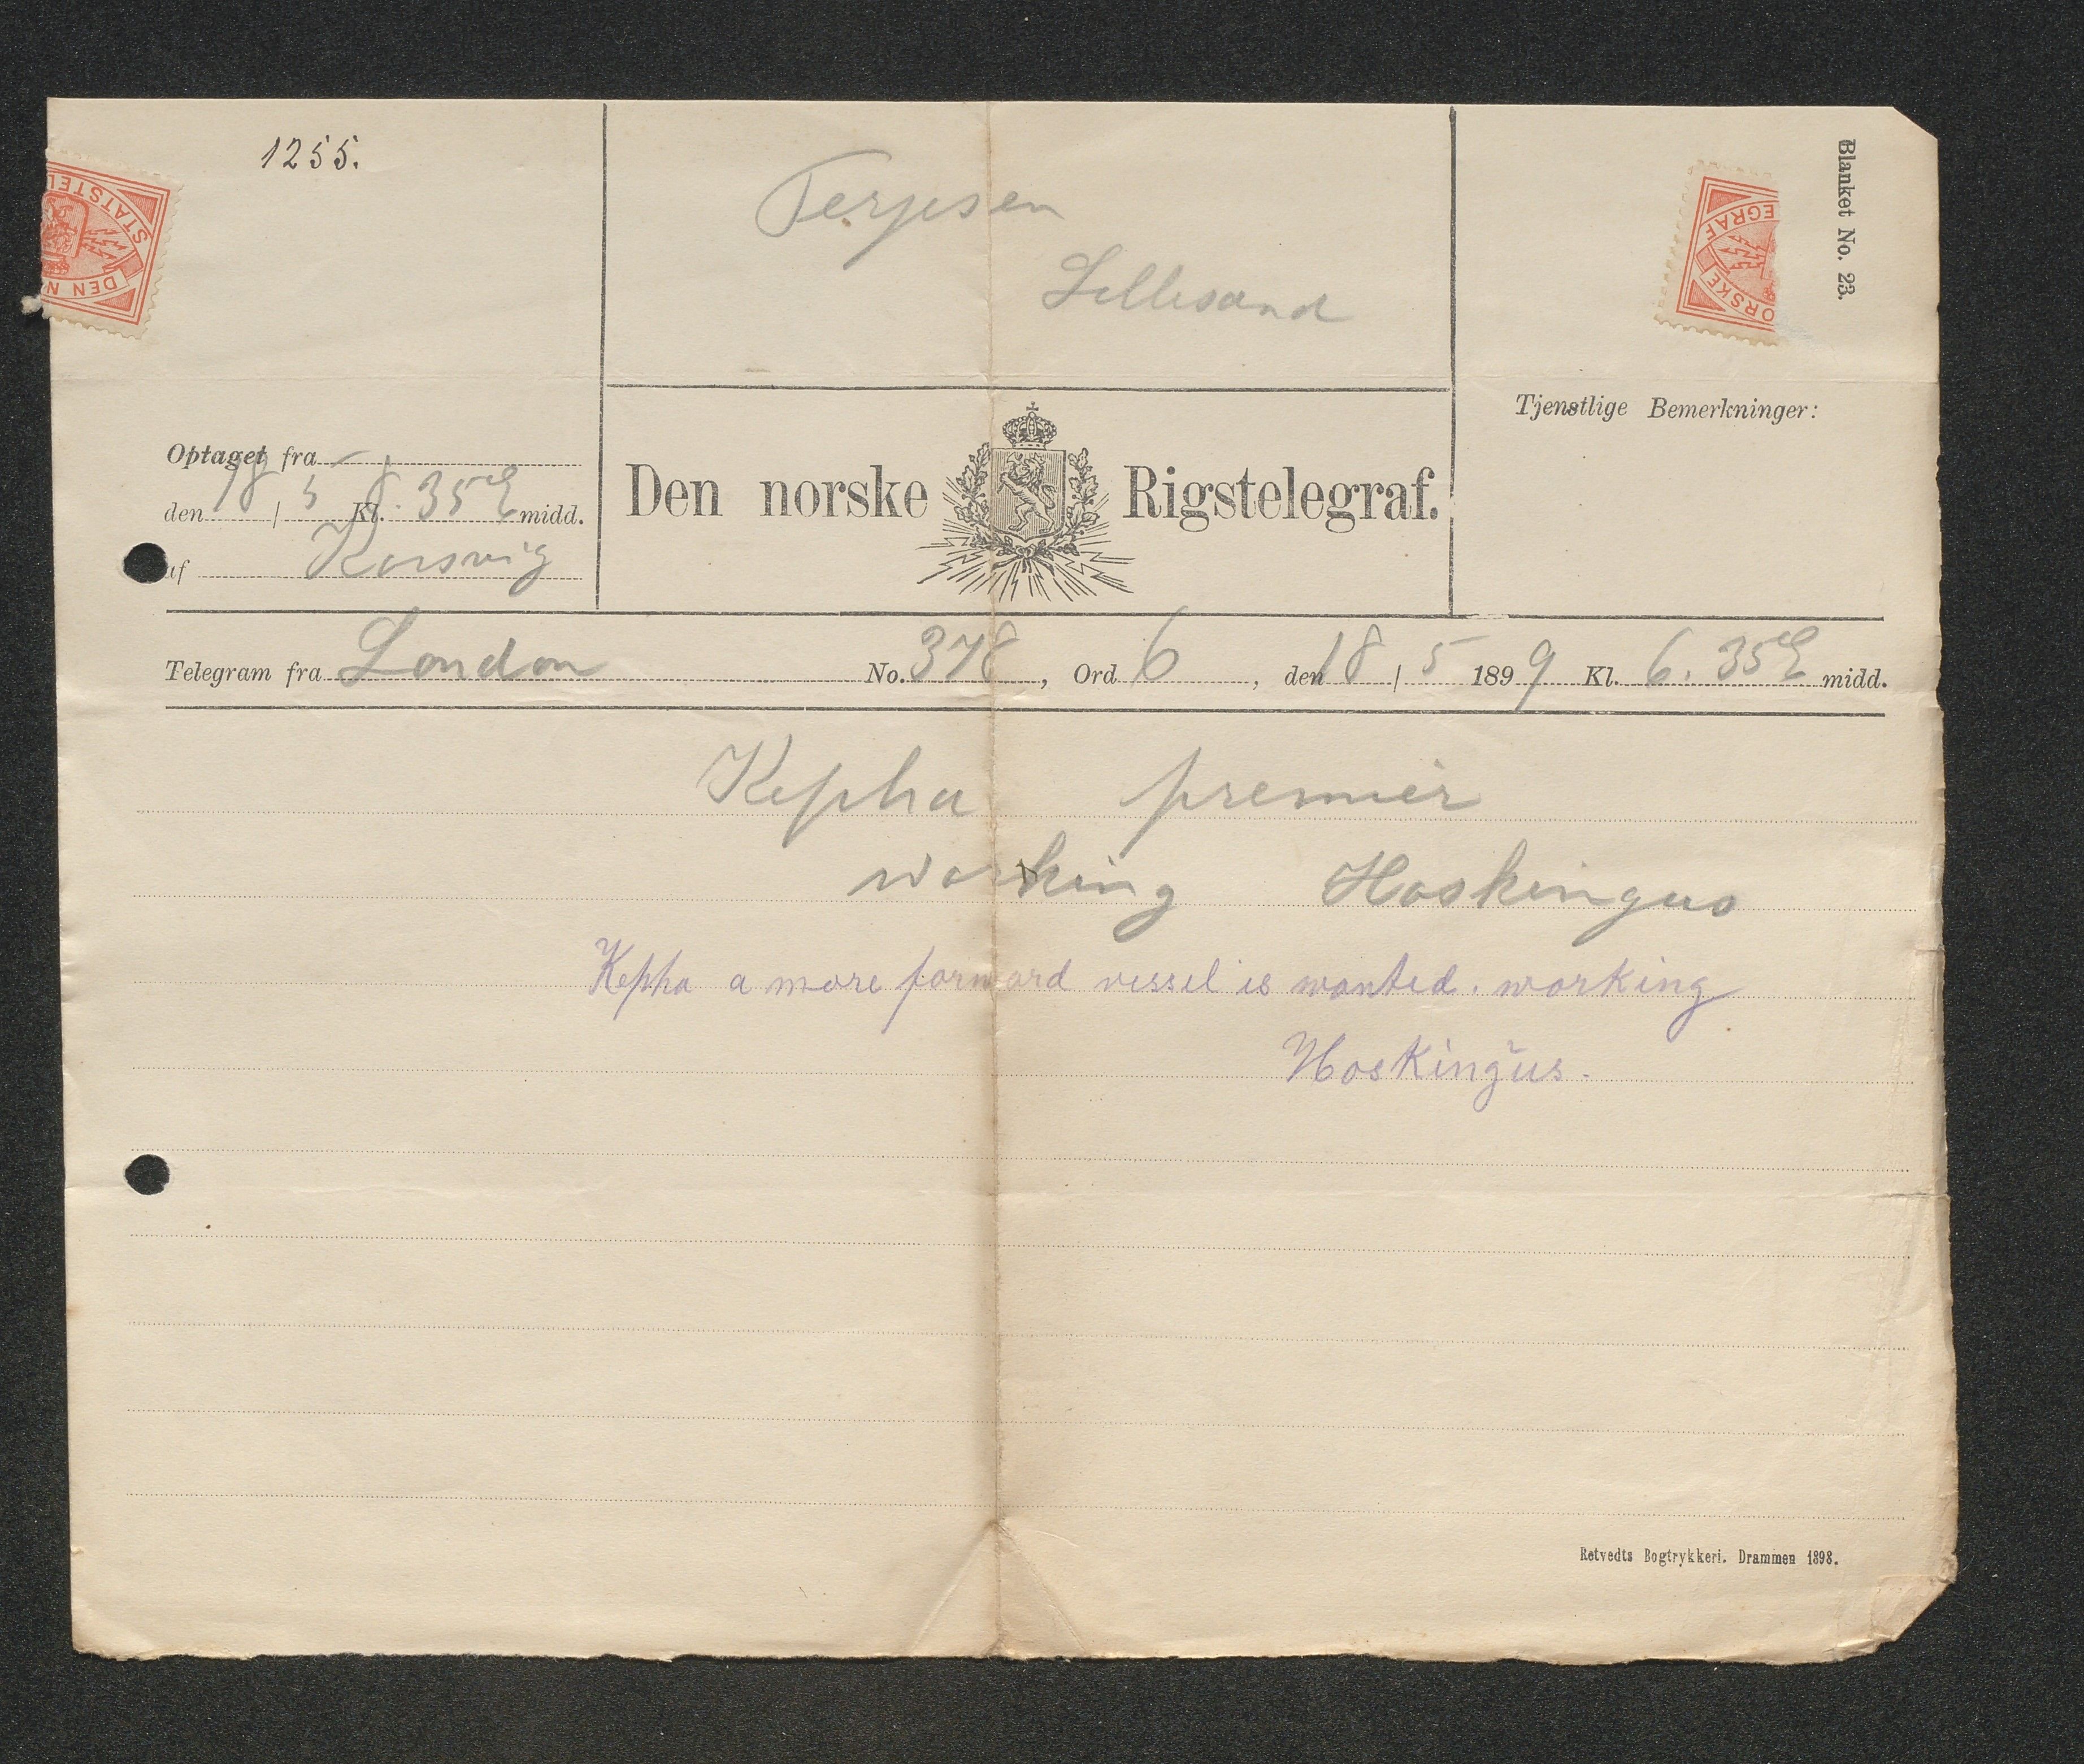 1255.
Terjesen
Lillesand
Blanket No. 23.
STATSTEL
DEN N
EGRAF
ORSKE
Tjenstlige Bemerkninger:
Optaget fra
den 18 / 5 Kl. 8.35 E midd.
af Korsvig
Den norske Rigstelegraf.
Telegram fra London No. 378, Ord 6, den 18 / 5 1899 Kl. 6.35 E midd.
Kepha premier
working Hoskingus
Kepha a more forward vessel is wanted. working
Hoskingus.
Retvedts Bogtrykkeri. Drammen 1898.